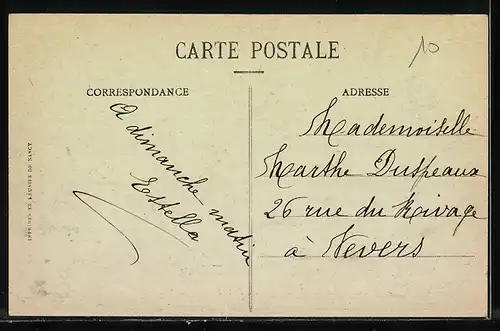 CARTE POSTALE
10
CORRESPONDANCE
ADRESSE
A dimanche matin
Estella
Mademoiselle
Marthe Duspeaux
26 rue du Rivage
à Nevers
IMPRIMERIES RÉUNIES DE NANCY